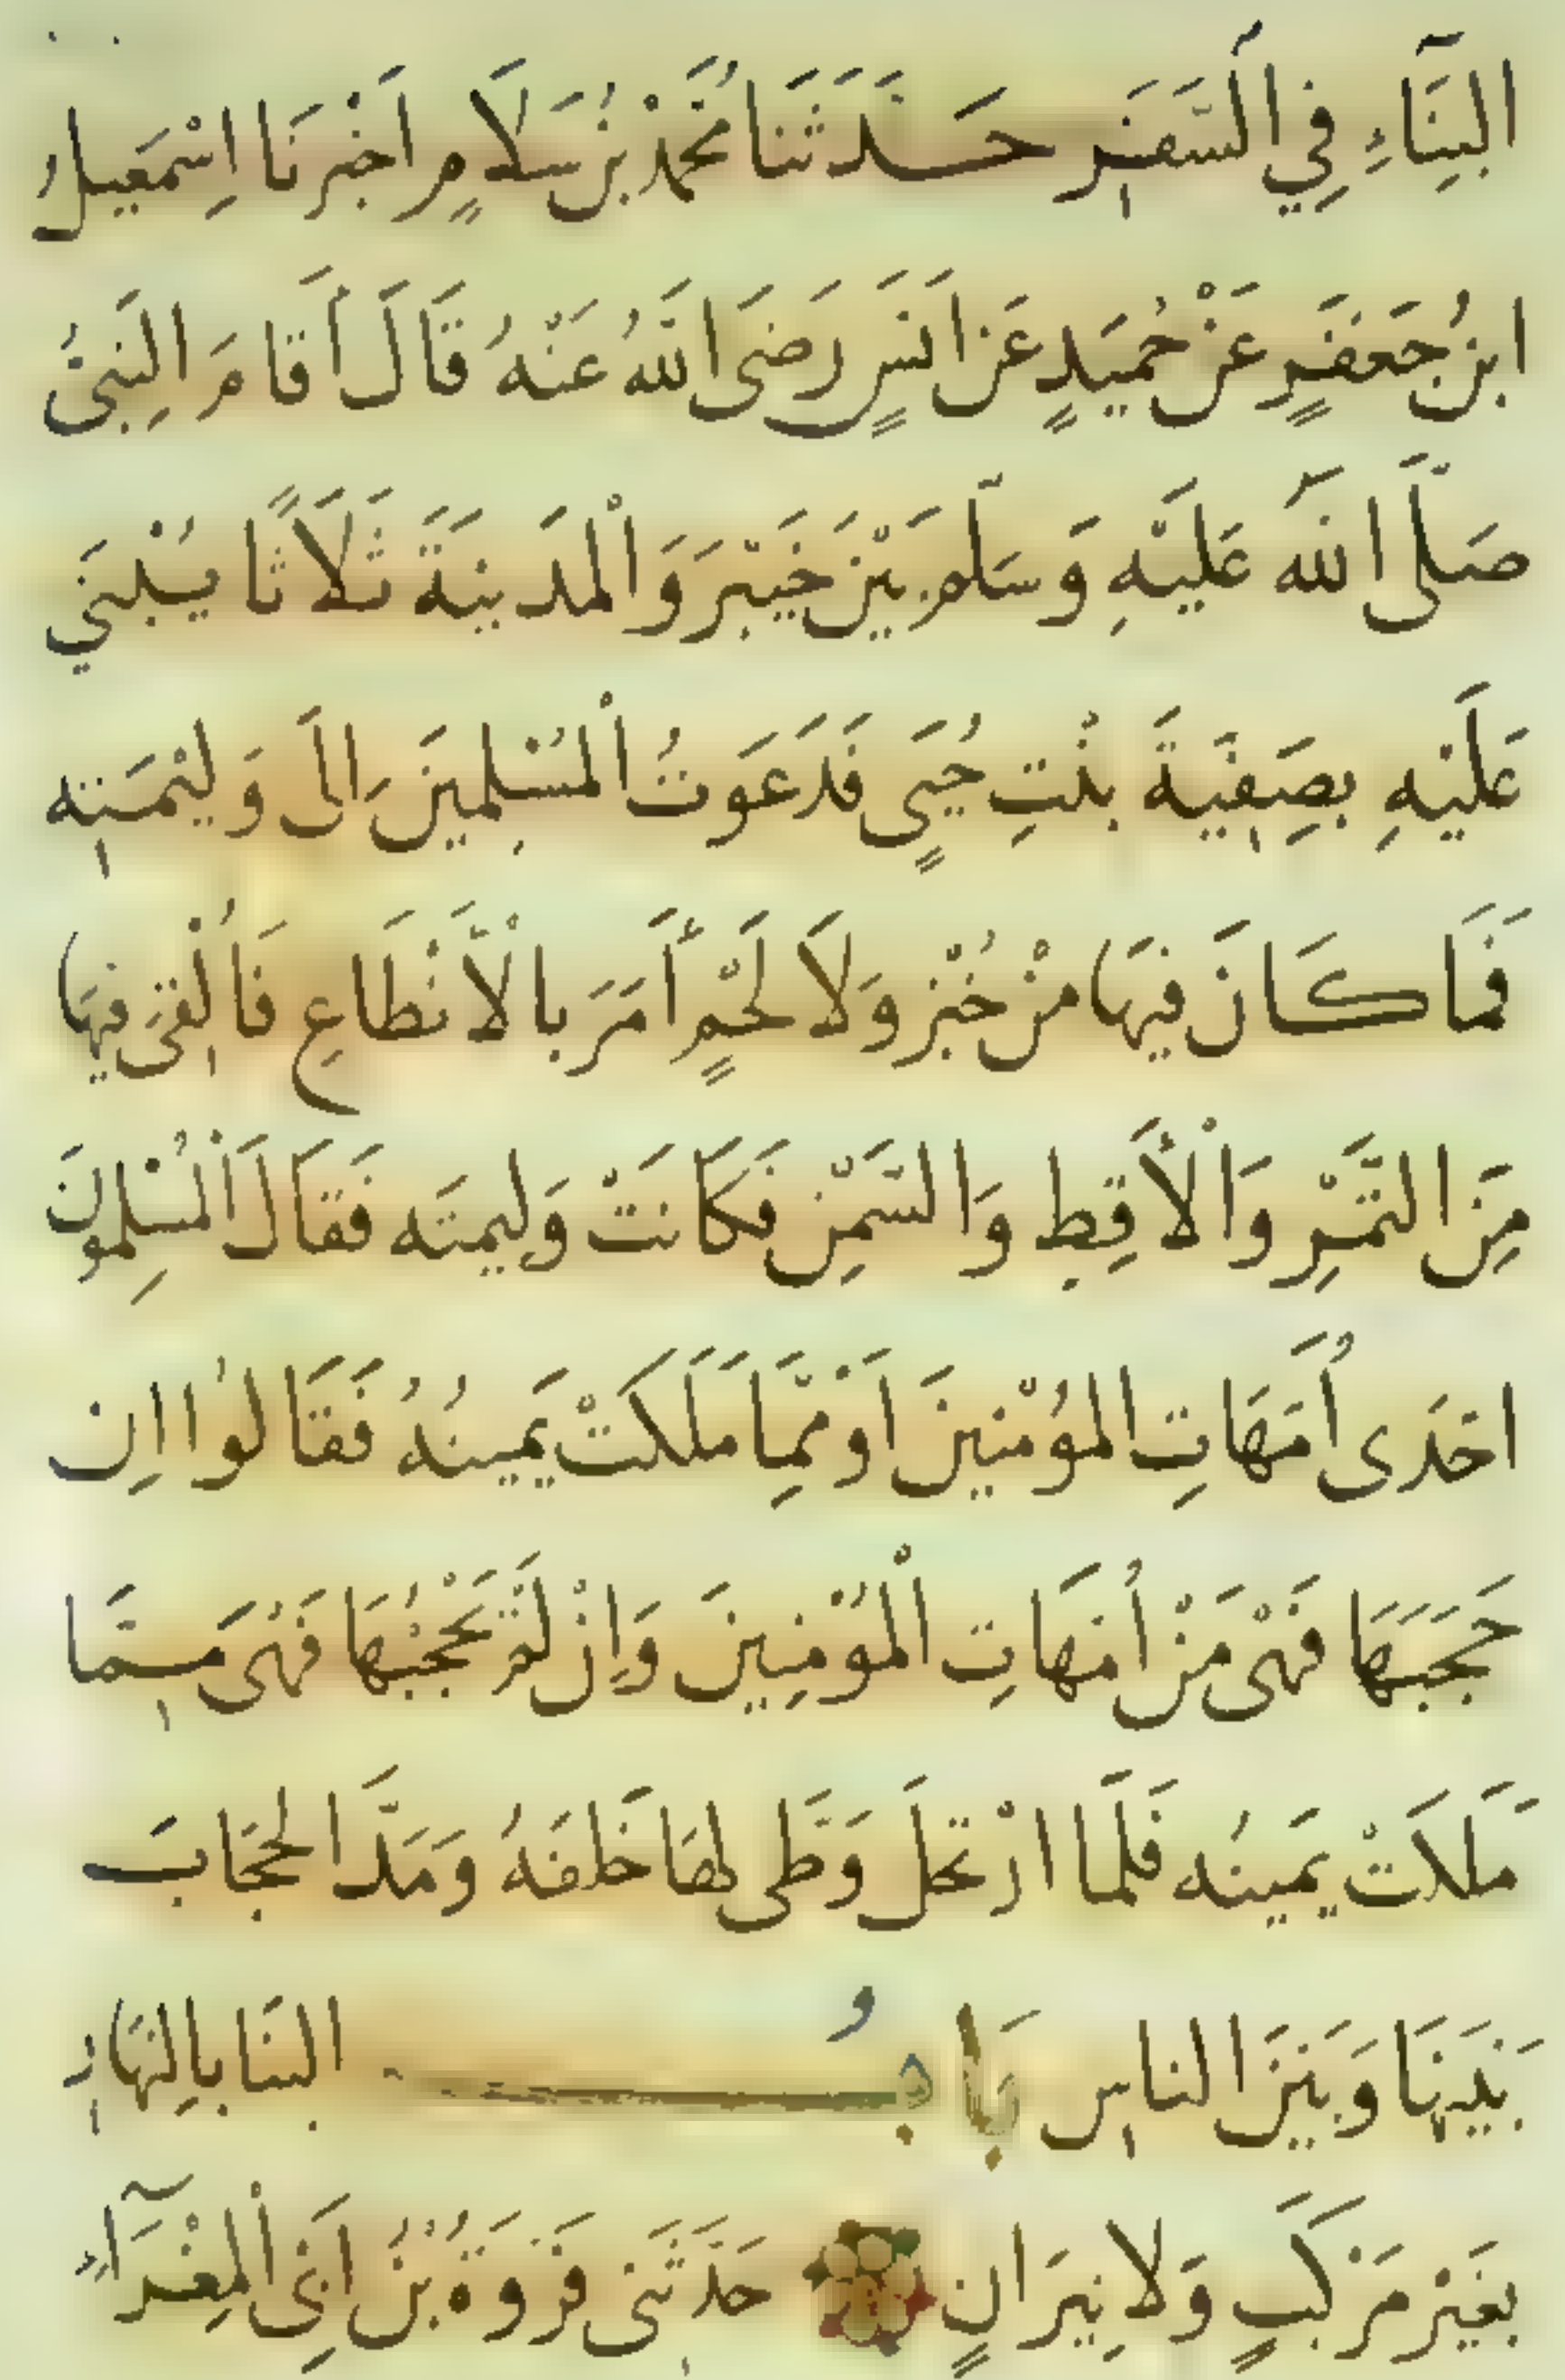 البِنَاءِ فِي السَّفَرِ حَدَّثَنَا مُحَمَّدُ بْنُ سَلَامٍ اَخْبَرَنَا اِسْمَعِيلُ
ابنُ جَعْفَرٍ عَنْ حُمَيْدٍ عَنْ اَنَسٍ رَضِىَ اللهُ عَنْهُ قَالَ أَقَامَ النَّبِىُّ
صَلَّى اللهُ عَلَيْهِ وَسَلَّم بَيْنَ خَيْبَرَ وَالْمَدِينَةَ ثَلَاثًا يُبْنَي
عَلَيْهِ بِصَفِيَّةَ بِنْتِ حُيَىٍّ فَدَعَوتُ الْمُسْلِمِينَ اِلَى وَلِيْمَتِه
فَمَا كَانَ فِيهَا مِنْ خُبْزٍ وَلَا لَحْمٍ أَمَرَ بِالْأَنْطَاعِ فَأُلْقِىَ فِيهَا
مِنَ التَّمْرِ وَالْأَقِطِ وَالسَّمْنِ فَكَانَتْ وَلِيمَتَه فَقَالَ الْمُسْلِمُونَ
احْدَى أُمَّهَاتِ المُؤْمِنِينَ اَوْ مِمَّا مَلَكَتْ يَمِينُهُ فَقَالُوا اِن
حَجَبَهَا فَهْىَ مِنْ أُمَّهَاتِ الْمُؤْمِنِينَ وَاِنْ لَمْ يَحْجُبْهَا فَهْىَ مِمَّا
مَلَكَتْ يَمِينُه فَلَمَّا ارْتَحَلَ وَطَّى لَهَا خَلْفَهُ وَمَدَّ الحِجَابَ
بَيْنَهَا وَبَيْنَ الناسِ بَابُ البِنَا بِالنَّهَارِ
بِغَيْرِ مَرْكَبٍ وَلَا نِيرَانٍ حَدَّثَنِى فَرْوَةُ بْنُ اَبِى الْمَغْرَآءِ